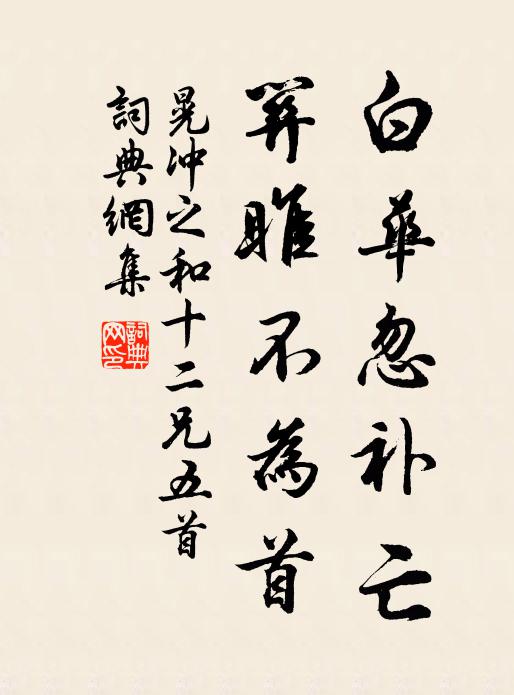 白華忽补亡
关雎不為首
晁冲之和十二兄五首
詞典網集
詞典网印